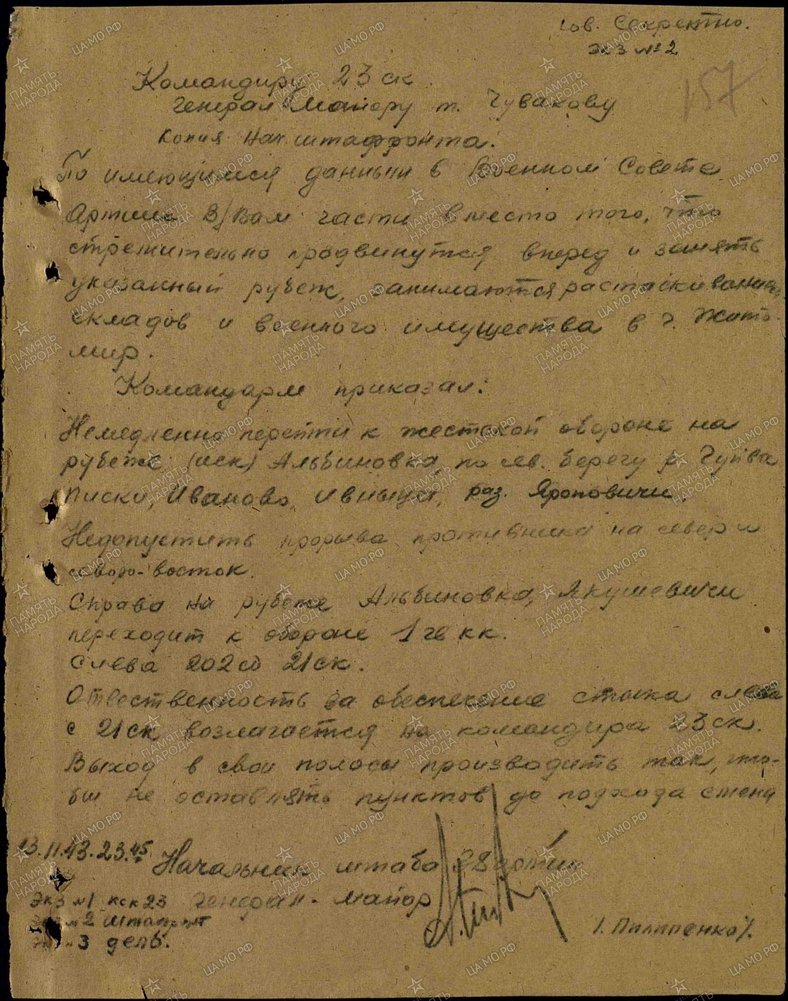 Сов. Секретно.
Экз №2
157
Командиру 23 ск
генерал майору т. Чувакову
Копия нач штафронта.
По имеющимся данным в Военном Совете
Армии В/Вам части вместо того, что
стремительно продвинутся вперед и занять
указанный рубеж, занимаются растаскиванием
складов и военного имущества в г. Жито-
мир.
Командарм приказал:
Немедленно перейти к жесткой обороне на
рубеже (иск) Альбиновка, по лев. берегу р. Гуйва
Писки, Иваново, Ивница, раз. Яроповичи.
Недопустить прорыва противника на север и
северо-восток.
Справа на рубеже Альбиновка, Якушевичи
переходит к обороне 1 гв кк.
Слева 202 сд 21 ск.
Отвественность за обеспечение стыка слева
с 21 ск возлагается на командира 23 ск.
Выход в свои полосы производить так, что-
бы не оставлять пунктов до подхода смены
13.11.43. 23.45 Начальник штаба 38 армии
Экз №1 кск 23 генерал-майор
Экз №2 штафронт
Экз №3 дело.
/. Пилипенко/.
ПАМЯТЬ НАРОДА
ЦАМО.РФ